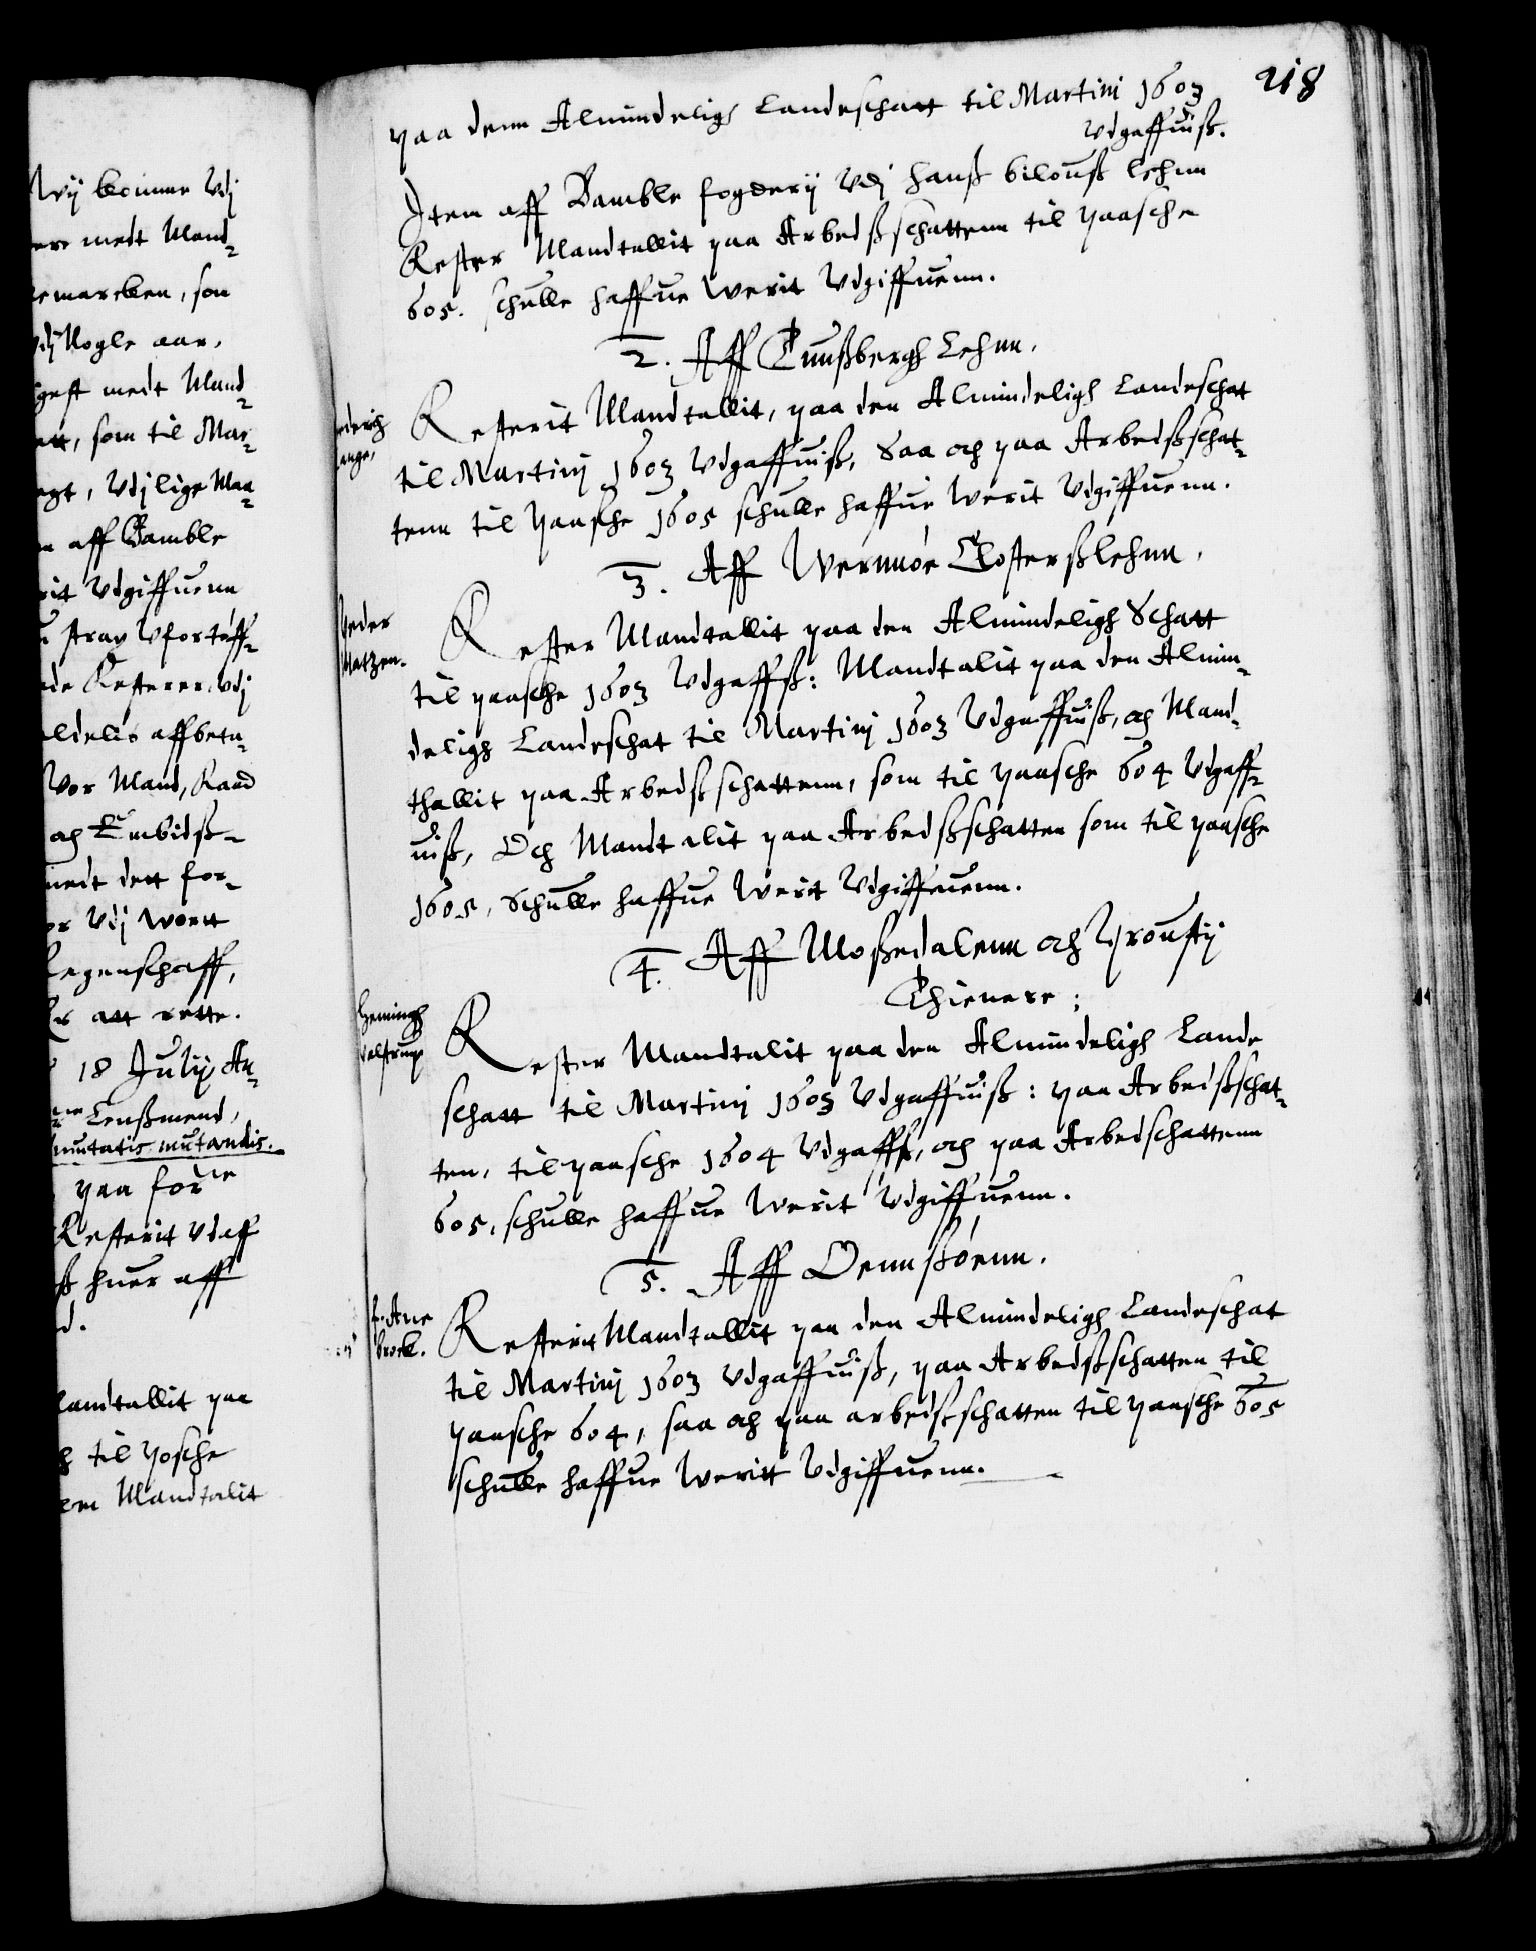 Wij komme Vdj
medt Mand¬
marcken, som
Vdj Nogle aar,
medt Mand¬
som til Mar¬
Vdj lige Maa¬
aff Bamble
Vdgiffuenn
strax Vfortøff¬
Resterer. Vdj
aldelis affbeta¬
Vor Mand, Raad
och Embidß¬
medt dett for¬
Vdj wortt
Regenschaff,
att rette.
18 Julij An¬
Lenßmend,
mutatis mutandis.
paa for^ne
Resterit Vdaff
huer aff
Mandtallit paa
til Posche
Mandtalit
218
paa denn Almindeligh Landeschatt til Martini 1603
Vdgaffuiß.
Item aff Bamble fogderij Vdj Hanß bilouß lehnn
Rester Mandtallit paa Arbedßschattenn til paasche
605. schulle haffue werit Vdgiffuenn.
2. Aff Tunßbergh Lehnn.
Resterit Mandtallit, paa den Almindeligh Landeschat
til Martinj 1603 Vdgaffuiß, Saa och paa Arbedßschat¬
tenn til Paasche 1605 schulle haffue werit Vdgiffuenn.
3. Aff Wernnøe Closterßlehnn.
Peder
Matzen.
Rester Mandtallit paa den Almindeligh Schatt
til paasche 1603 Vdgaffß: Mandtalit paa den Almin¬
deligh Landeschat til Martinj 1603 Vdgaffuiß, och Mand¬
thallit paa Arbedßschattenn, som til paasche 604 Vdgaff¬
uiß, Och Mandtalit paa Arbedßschatten som til paasche
1605, Schulle haffue werit Vdgiffuenn.
4. Aff Moßedalenn och Prousti
Thienere;
Hemingh
Valstrup
Rester Mandtalit paa den Almindeligh Lande
schatt til Martinj 1603 Vdgaffuiß: paa Arbedßschat¬
ten, til paasche 1604 Vdgaffß, och paa Arbedschattenn
605, schulle haffue werit Vdgiffuenn.
5. Aff Ørnnßøenn.
f. Ane
brock.
Resterit Mandtallit paa den Almindeligh Landeschat
til Martinj 1603 Vdgaffuiß, paa Arbedßschatten til
paasche 604, saa och paa arbedßschatten til paasche 605
schulle haffue weritt Vdgiffuenn.